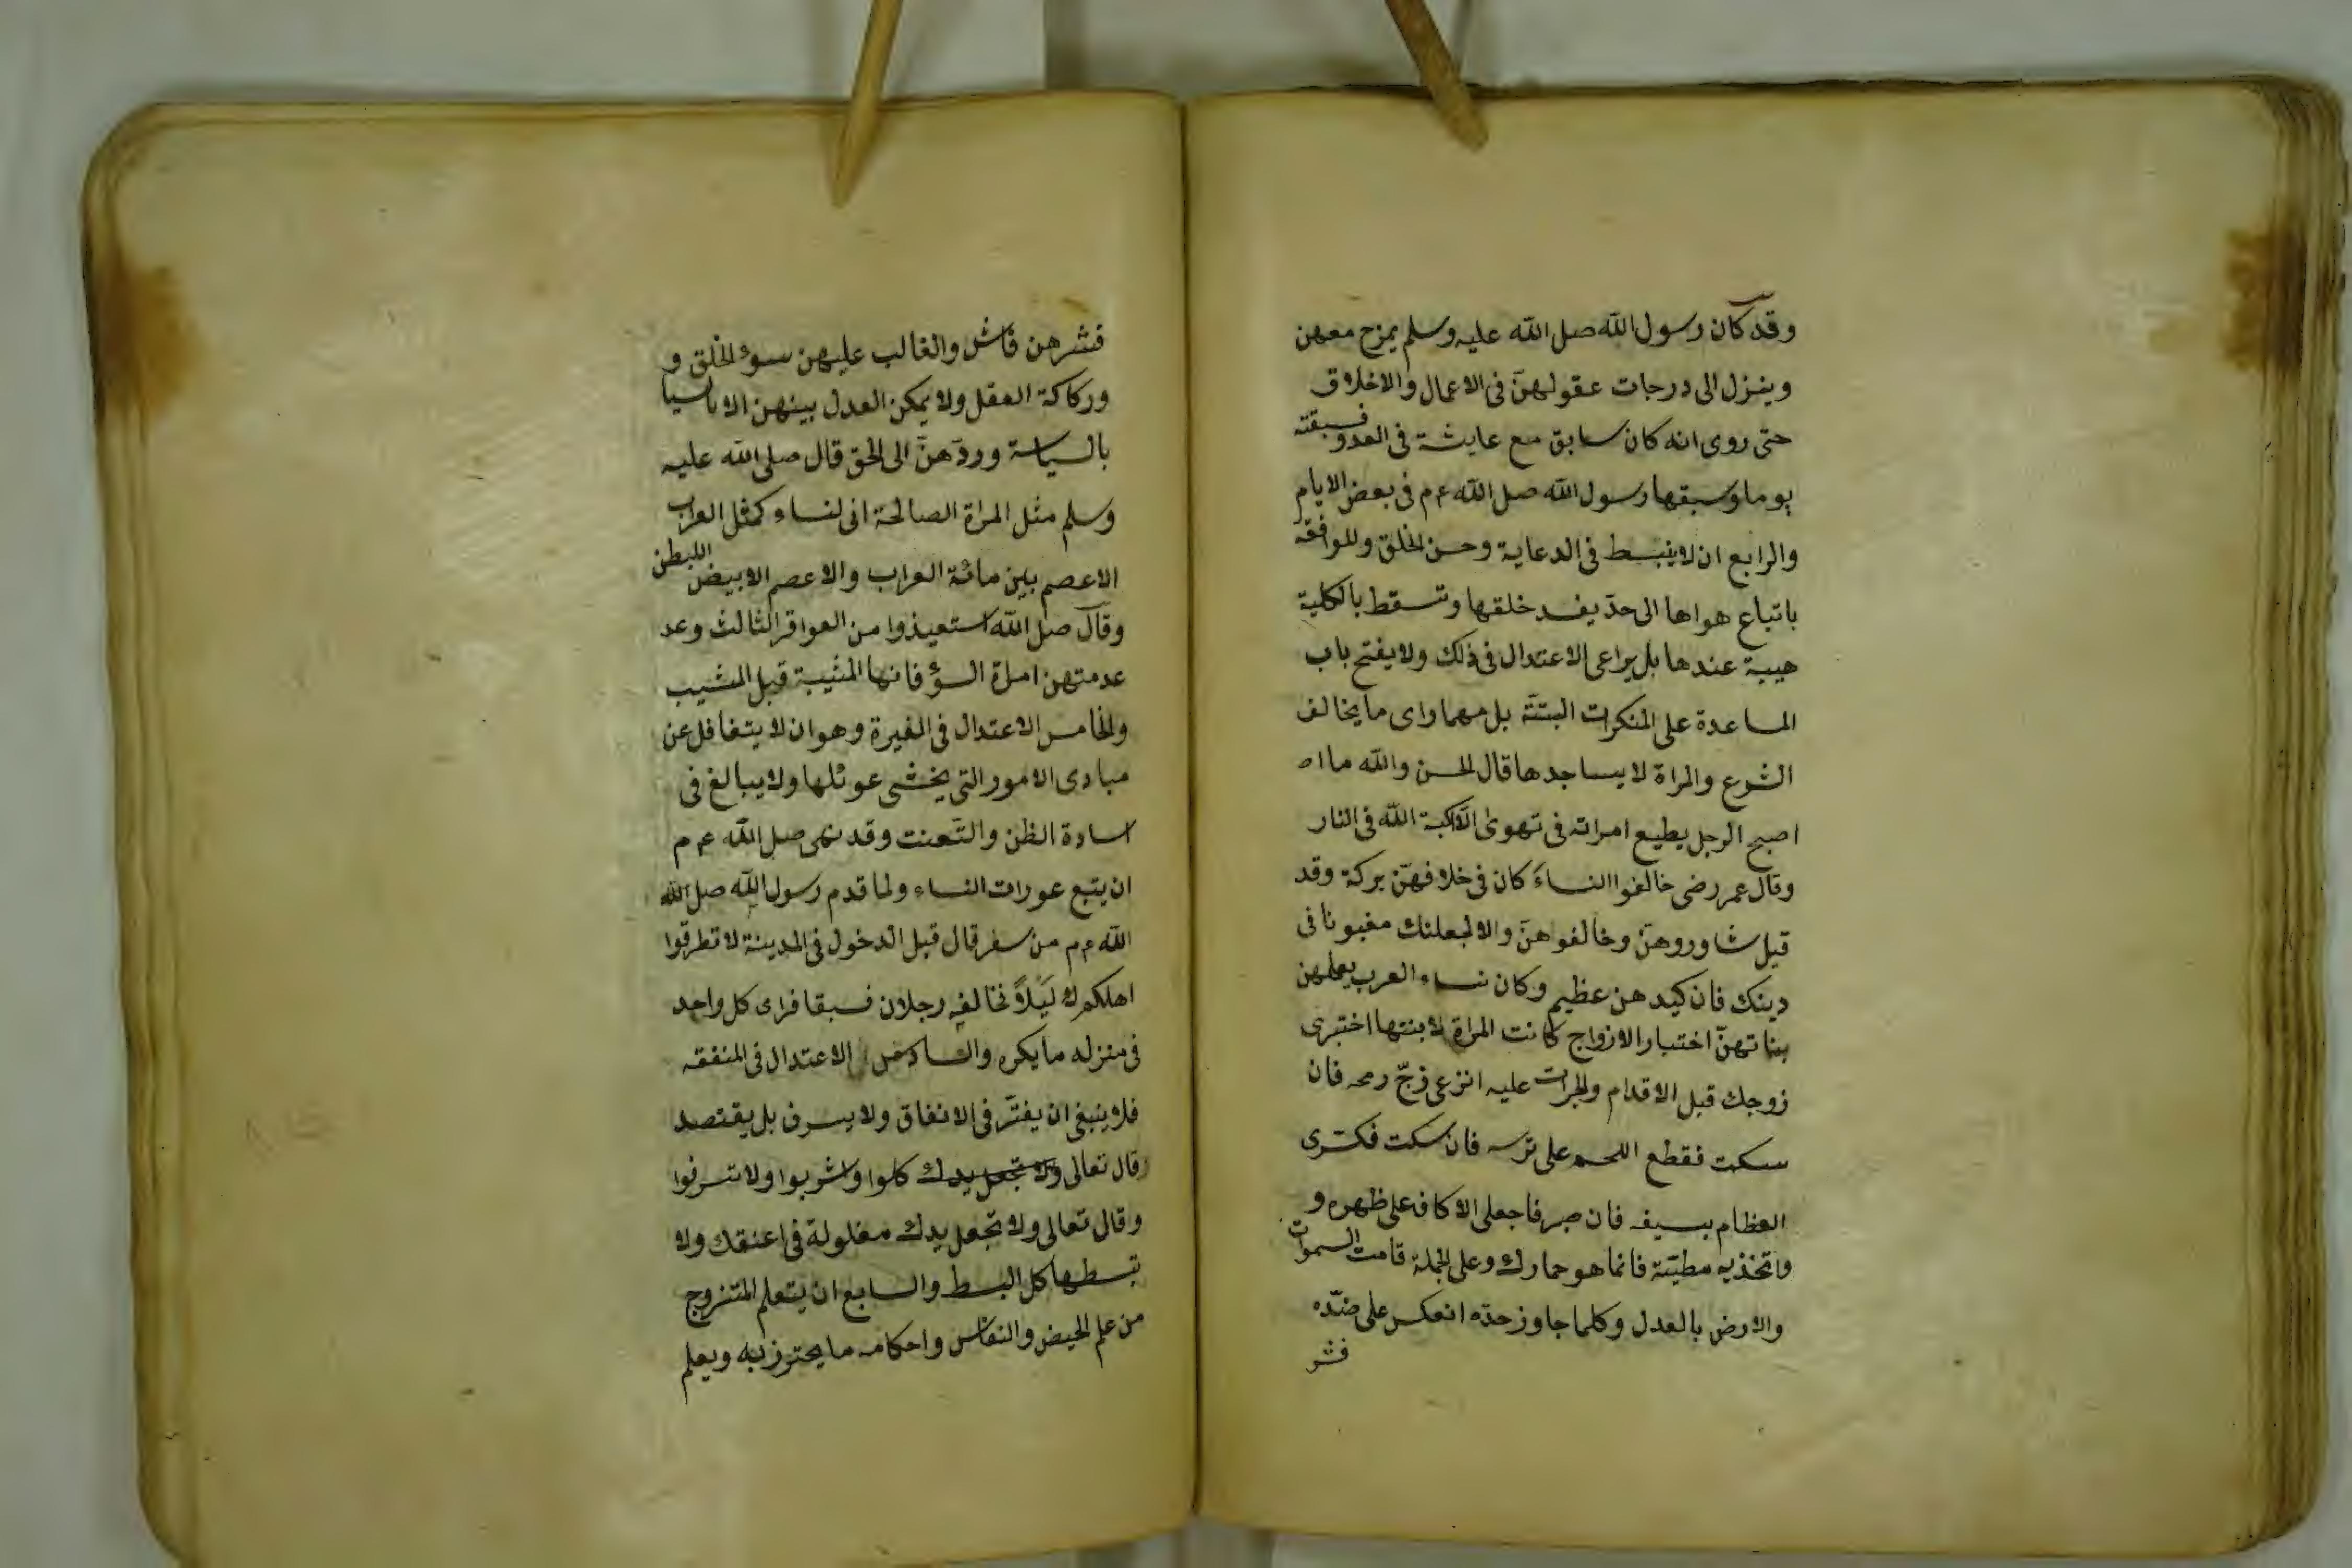 وقد كان رسول الله صلى الله عليه وسلم يمزح معهن
وينزل الى درجات عقولهنّ فى الاعمال والاخلاق
حتى روى انه كان سابق مع عايشة فى العدو فسبقته
يوما وسبقها رسول الله صلى الله ع م فى بعض الايام
والرابع ان لا ينبسط فى الدعاية وحسن الخلق وللوافقة
باتباع هواها الى حدّ يفسد خلقها وتسقط بالكلية
هيبة عندها بل يراعى الاعتدال فى ذلك ولا يفتح باب
المساعدة على المنكرات البتّة بل مهما راى ما يخالف
الشرع والمراة لا يساجدها قال الحسن والله ما اص
اصبح الرجل يطيع امراته فى تهوى الّا كبة الله فى النار
وقال عمر رضى خالفوا النساء كان فى خلافهنّ بركة وقد
قيل شاوروهنّ وخالفوهنّ والا لجعلنك مغبونا فى
دينك فان كيدهن عظيم وكان نساء العرب يعلمهن
بناتهنّ اختبار الازواج كانت المراة لابنتها اختبرى
زوجك قبل الاقدام والجرات عليه انزعى زجّ رمحه فان
سكت فقطع اللحم على ترسه فان سكت فكسّرى
العظام بسيفه فان صبر فاجعلى الاكاف على ظهره و
واتخذيه مطيّة فانما هو حمارك وعلى الجملة قامت السموات
والارض بالعدل وكلما جاوز حدّه انعكس على ضدّه
فشر
فشرهن فاش والغالب عليهن سوء الخلق و
وركاكة العقل ولا يمكن العدل بينهن الا بالسيا
بالسياسة وردّهنّ الى الحق قال صلى الله عليه
وسلم مثل المراة الصالحة انى لنساء كمثل الغراب
الاعصم بين مائة الغراب والاعصم الابيض البطن
وقال صلى الله استعيذوا من العواقر الثالث وعد
عدمتهن امراة السؤ فانها المشيبة قبل المشيب
والخامس الاعتدال فى الغيرة وهو ان لا يتغافل عن
مبادى الامور التى يخشى عوئلها ولا يبالغ فى
اسادة الظن والتّعنت وقد نهى صلى الله ع م
ان يتبع عورات النساء ولما قدم رسول الله صلى الله
الله ع م من سفر قال قبل الدخول فى المدينة لا تطرقوا
اهلكم لَيْلاً فخالفه رجلان فسبقا فراى كل واحد
فى منزله ما يكره والسادس الاعتدال فى المنفقه
فلا ينبغى ان يفتّر فى الانفاق ولا يسرف بل يقتصد
قال تعالى ولا تجعل يدك كلوا واشربوا ولا تسرفوا
وقال تعالى ولا تجعل يدك مغلولة فى اعنقك ولا
تبسطها كل البسط والسابع ان يتعلم المتنزوج
من علم الحيض والنفاس واحكامه ما يحترز به ويعلم